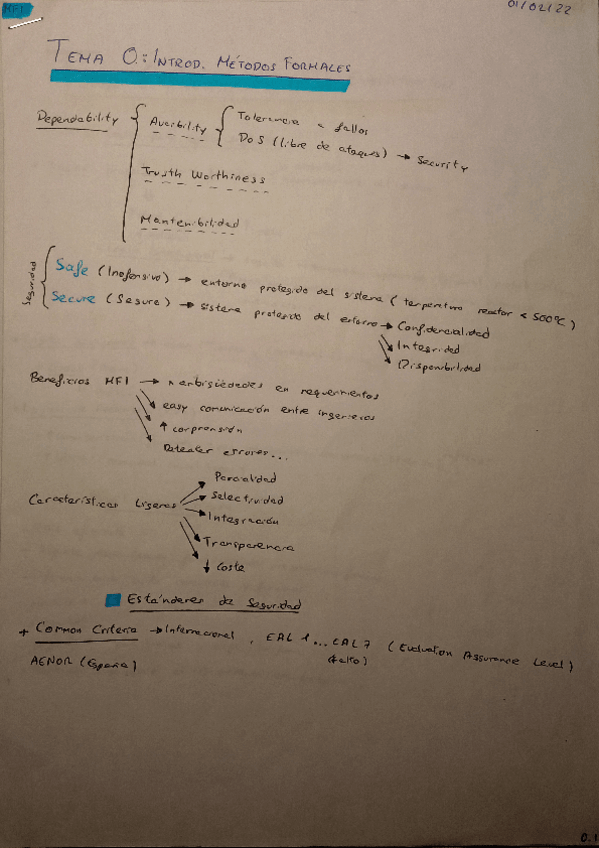 MFI
01/02/22
TEMA 0.: INTROD. MÉTODOS FORMALES
Dependability
Avaibility
Tolerancia a fallos
DoS (libre de ataques) → Security
Trusth Worthiness
Mantenibilidad
Seguridad
Safe (Inofensivo) → entorno protegido del sistema (temperatura reactor < 500ºC)
Secure (Seguro) → sistema protegido del entorno → Confidencialidad
Integridad
Disponibilidad
Beneficios MFI → ambigüedades en requerimientos
easy comunicación entre ingenieros
↑ comprensión
Detectar errores...
Características Ligeros
Parcialidad
Selectividad
Integración
Transparencia
↓ Coste
Estándares de Seguridad
+ Common Criteria → Internacional, EAL 1 ... EAL 7 (Evaluation Assurance Level)
(+alto)
AENOR (España)
0.1